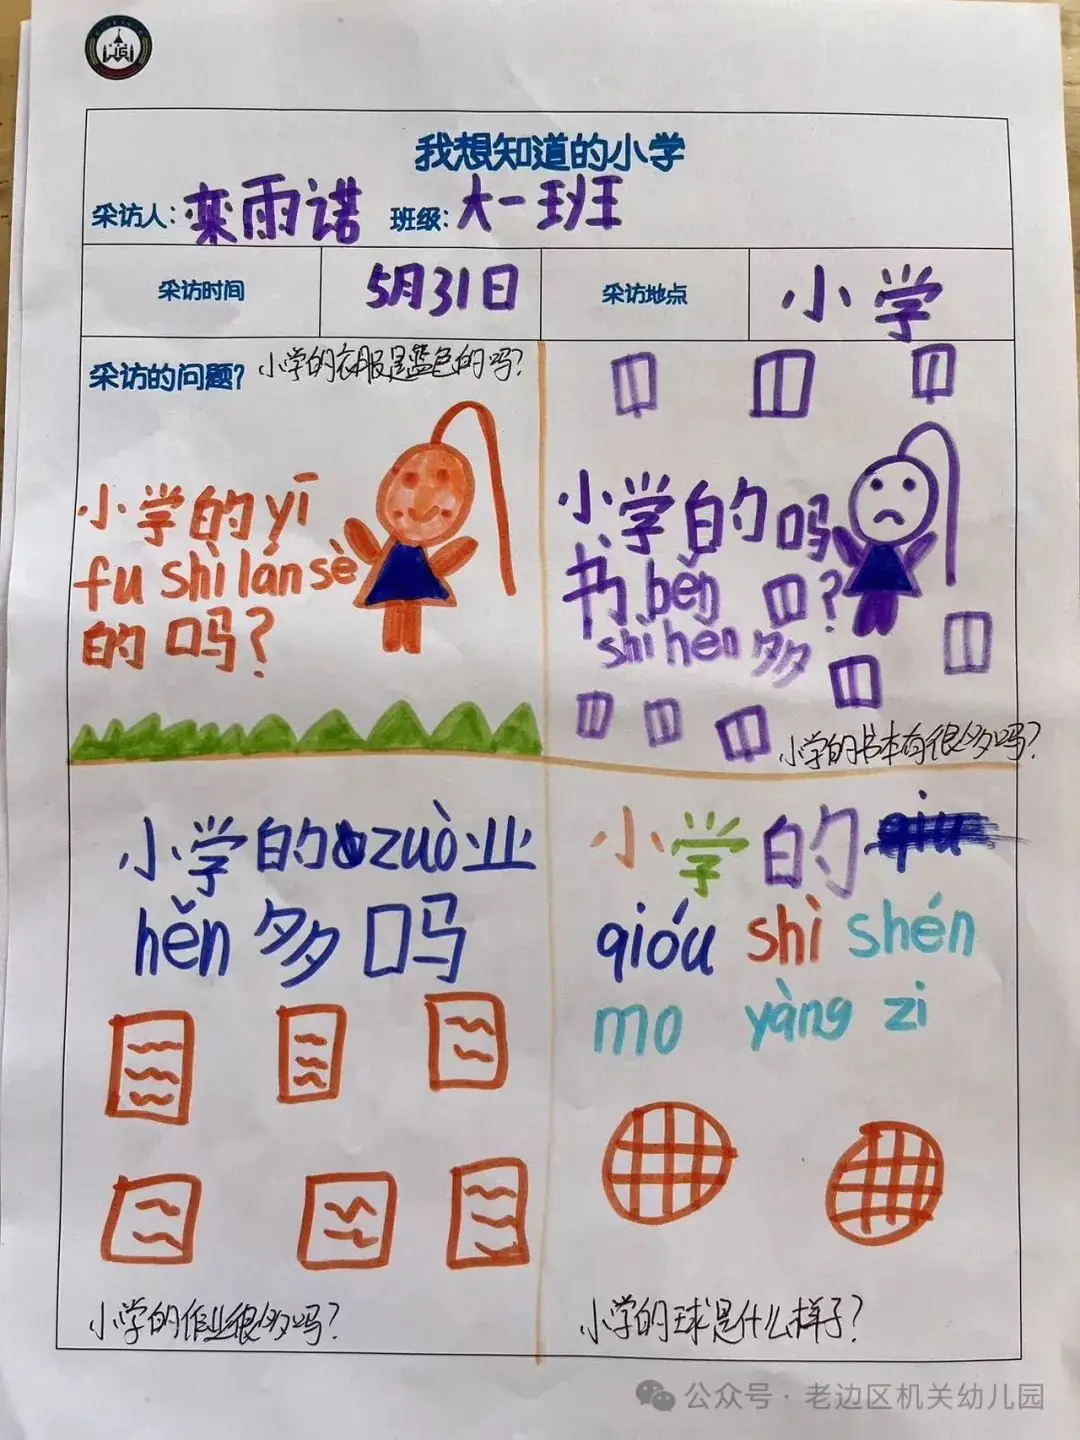 我想知道的小学
采访人：栾雨诺 班级：大一班
采访时间 5月31日 采访地点 小学
采访的问题？ 小学的衣服是蓝色的吗？
小学的yī
fu shì lán sè
的吗？
小学的吗
书běn ？
shì hen多
小学的书本有很多吗？
小学的zuò业
hěn多吗
小学的作业很多吗？
小学的qiu
qióu shì shén
mo yàng zi
小学的球是什么样子？
公众号·老边区机关幼儿园